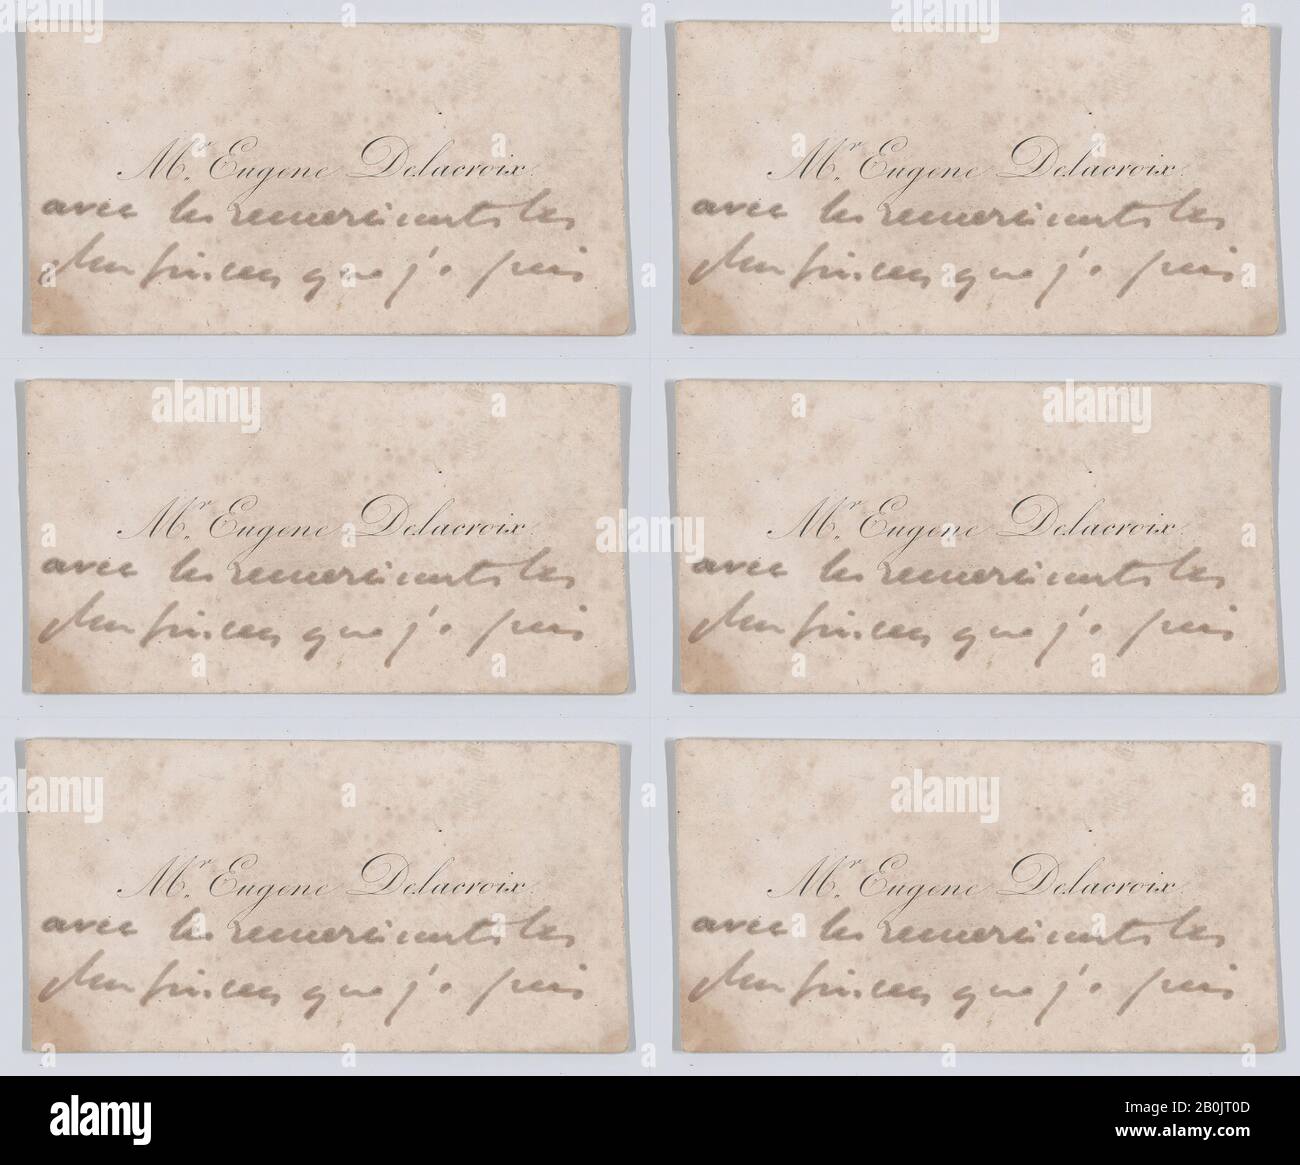 Mr. Eugene Delacroix.
avec les remerciments les
plus sincères que je puis
Mr. Eugene Delacroix.
avec les remerciments les
plus sincères que je puis
Mr. Eugene Delacroix.
avec les remerciments les
plus sincères que je puis
Mr. Eugene Delacroix.
avec les remerciments les
plus sincères que je puis
Mr. Eugene Delacroix.
avec les remerciments les
plus sincères que je puis
Mr. Eugene Delacroix.
avec les remerciments les
plus sincères que je puis
alamy
Image ID: 2B0JT0D
www.alamy.com